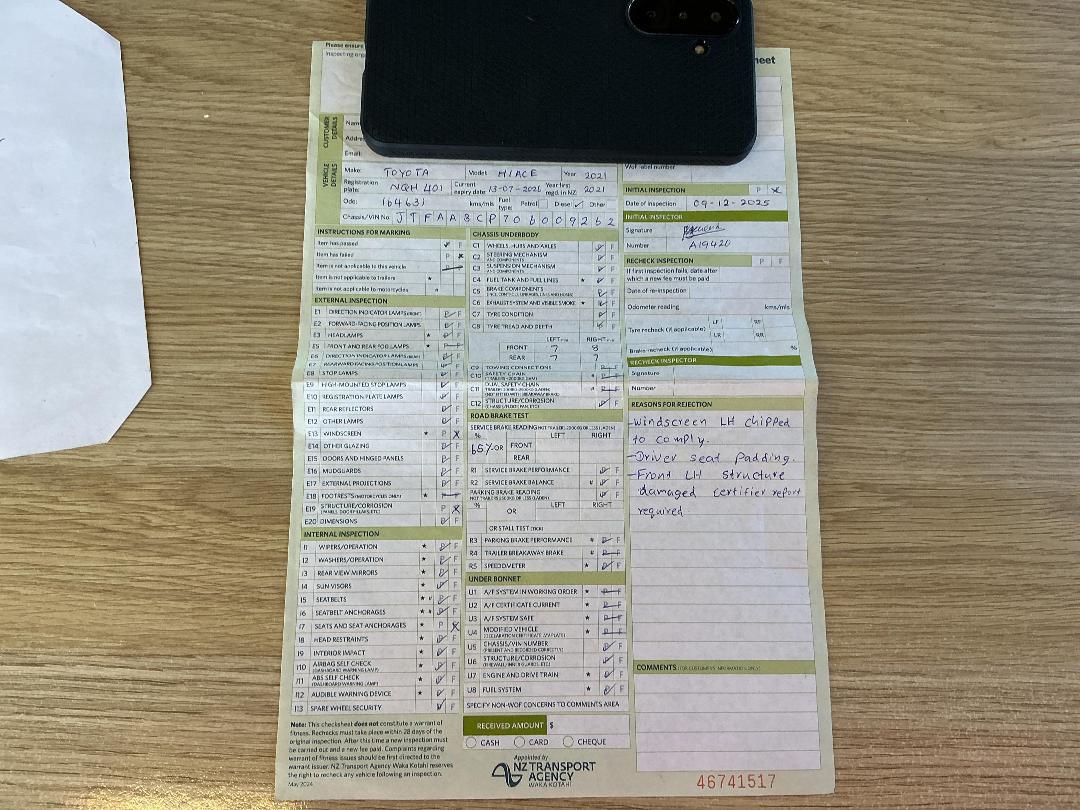 Please ensure
Inspecting orga
heet
CUSTOMER DETAILS
Name
Addre
Email:
VEHICLE DETAILS
Make: TOYOTA Model: HIACE Year 2021
Registration plate: NQH 401 Current expiry date 13-07-2026 Year first regd. in NZ 2021
Odo: 164631 kms/mls Fuel type: Petrol Diesel ✓ Other
Chassis/VIN No
WoF label number
INSTRUCTIONS FOR MARKING
Item has passed F
Item has failed P
Item is not applicable to this vehicle
Item is not applicable to trailers *
Item is not applicable to motorcycles #
EXTERNAL INSPECTION
E1 DIRECTION INDICATOR LAMPS (FRONT) P F
E2 FORWARD-FACING POSITION LAMPS P F
E3 HEADLAMPS * P F
E5 FRONT AND REAR FOG LAMPS * P F
E6 DIRECTION INDICATOR LAMPS (REAR) P F
E7 REARWARD FACING POSITION LAMPS P F
E8 STOP LAMPS P F
E9 HIGH-MOUNTED STOP LAMPS P F
E10 REGISTRATION PLATE LAMPS P F
E11 REAR REFLECTORS P F
E12 OTHER LAMPS P F
E13 WINDSCREEN * P X
E14 OTHER GLAZING P F
E15 DOORS AND HINGED PANELS P F
E16 MUDGUARDS P F
E17 EXTERNAL PROJECTIONS P F
E18 FOOTRESTS (MOTORCYCLES ONLY) * P F
E19 STRUCTURE/CORROSION P X
E20 DIMENSIONS P F
INTERNAL INSPECTION
I1 WIPERS/OPERATION * P F
I2 WASHERS/OPERATION * P F
I3 REAR VIEW MIRRORS * P F
I4 SUN VISORS P F
I5 SEATBELTS * # P F
I6 SEATBELT ANCHORAGES * # P F
I7 SEATS AND SEAT ANCHORAGES * P X
I8 HEAD RESTRAINTS * P F
I9 INTERIOR IMPACT P F
I10 AIRBAG SELF CHECK * P F
(DASHBOARD WARNING LAMP)
I11 ABS SELF CHECK * P F
(DASHBOARD WARNING LAMP)
I12 AUDIBLE WARNING DEVICE * P F
I13 SPARE WHEEL SECURITY P F
Note: This checksheet does not constitute a warrant of
fitness. Rechecks must take place within 28 days of the
original inspection. After this time a new inspection must
be carried out and a new fee paid. Complaints regarding
warrant of fitness issues should be first directed to the
warrant issuer. NZ Transport Agency Waka Kotahi reserves
the right to recheck any vehicle following an inspection.
May 2024
CHASSIS UNDERBODY
C1 WHEELS, HUBS AND AXLES P F
C2 STEERING MECHANISM P F
AND COMPONENTS
C3 SUSPENSION MECHANISM P F
AND COMPONENTS
C4 FUEL TANK AND FUEL LINES * P F
C5 BRAKE COMPONENTS P F
C6 EXHAUST SYSTEM AND VISIBLE SMOKE * P F
C7 TYRE CONDITION P F
C8 TYRE TREAD AND DEPTH P F
LEFT RIGHT
FRONT 7 8
REAR 7 7
C9 TOWING CONNECTIONS P F
C10 SAFETY CHAIN # P F
C11 DUAL SAFETY CHAIN # P F
C12 STRUCTURE/CORROSION P F
ROAD BRAKE TEST
SERVICE BRAKE READING
% LEFT RIGHT
65% OR FRONT
REAR
R1 SERVICE BRAKE PERFORMANCE P F
R2 SERVICE BRAKE BALANCE # P F
PARKING BRAKE READING
% LEFT RIGHT
OR
OR STALL TEST (TICK)
R3 PARKING BRAKE PERFORMANCE # P F
R4 TRAILER BREAKAWAY BRAKE # P F
R5 SPEEDOMETER * P F
UNDER BONNET
U1 A/F SYSTEM IN WORKING ORDER * P F
U2 A/F CERTIFICATE CURRENT * P F
U3 A/F SYSTEM SAFE P F
U4 MODIFIED VEHICLE P F
U5 CHASSIS/VIN NUMBER P F
(PRESENT AND RECORDED CORRECTLY)
U6 STRUCTURE/CORROSION P F
U7 ENGINE AND DRIVE TRAIN * P F
U8 FUEL SYSTEM * P F
SPECIFY NON-WOF CONCERNS TO COMMENTS AREA
RECEIVED AMOUNT $
CASH CARD CHEQUE
Appointed by
NZ TRANSPORT
AGENCY
WAKA KOTAHI
INITIAL INSPECTION P X
Date of inspection 09-12-2025
INITIAL INSPECTOR
Signature
Number A19420
RECHECK INSPECTION P F
If first inspection fails, date after
which a new fee must be paid
Date of re-inspection
Odometer reading kms/mls
Tyre recheck (if applicable) LF RF
LR RR
Brake recheck (if applicable) %
RECHECK INSPECTOR
Signature
Number
REASONS FOR REJECTION
-Windscreen LH chipped
to comply.
-Driver seat padding.
-Front LH structure
damaged certifier report
required.
COMMENTS (FOR CUSTOMER'S INFORMATION ONLY)
46741517